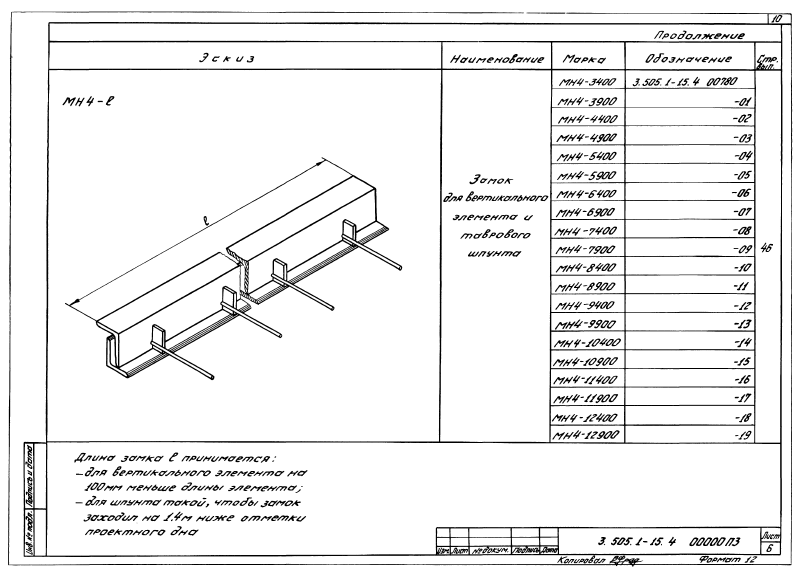 10
Продолжение
Эскиз Наименование Марка Обозначение Стр. вып.
МН4-ℓ
ℓ
Замок
для вертикального
элемента и
таврового
шпунта
МН4-3400 3.505.1-15.4 00780
МН4-3900 -01
МН4-4400 -02
МН4-4900 -03
МН4-5400 -04
МН4-5900 -05
МН4-6400 -06
МН4-6900 -07
МН4-7400 -08
МН4-7900 -09 46
МН4-8400 -10
МН4-8900 -11
МН4-9400 -12
МН4-9900 -13
МН4-10400 -14
МН4-10900 -15
МН4-11400 -16
МН4-11900 -17
МН4-12400 -18
МН4-12900 -19
Длина замка ℓ принимается:
- для вертикального элемента на
100мм меньше длины элемента;
- для шпунта такой, чтобы замок
заходил на 1.4м ниже отметки
проектного дна
Инв.№ подл. Подпись и дата
Изм. Лист № докум. Подпись Дата
3.505.1-15.4 00000ПЗ
Лист
6
Копировал Формат 12